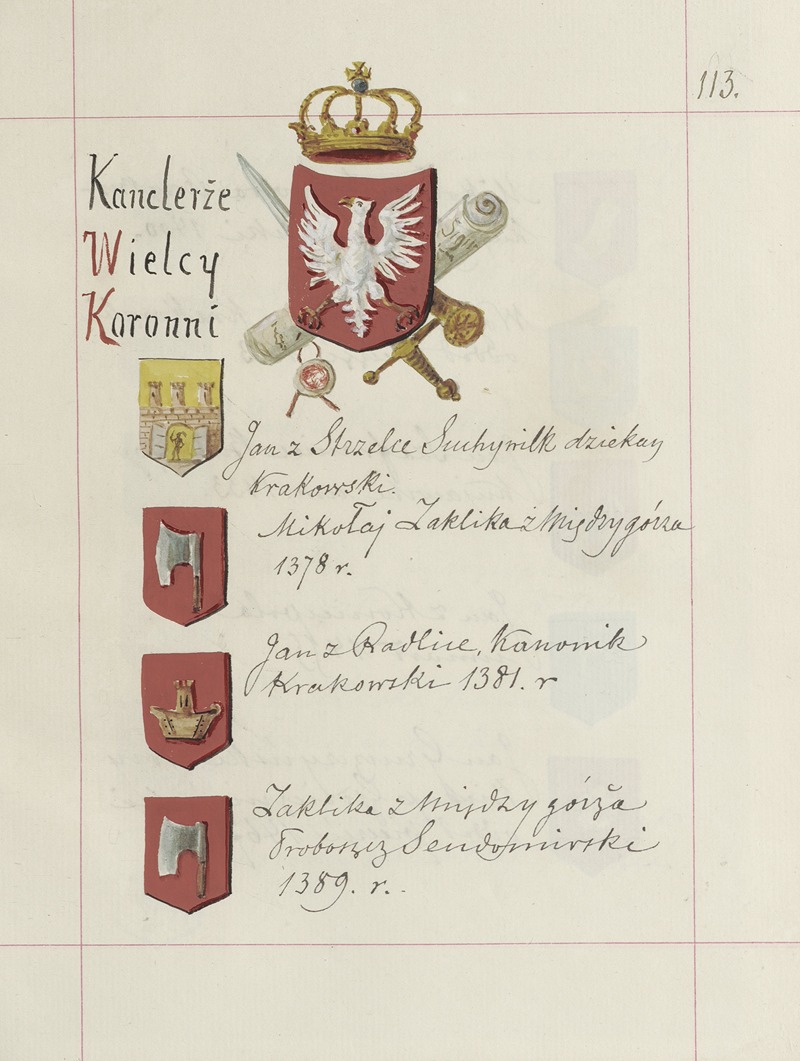 113.
Kanclerże
Wielcy
Koronni
Jan z Strzelce Suchywilk dziekan
Krakowski.
Mikołaj Zaklika z Międzygórza
1378 r.
Jan z Radlice, Kanonik
Krakowski 1381. r
Zaklika z Między górża
Proboszcz Sendomirski
1389. r..